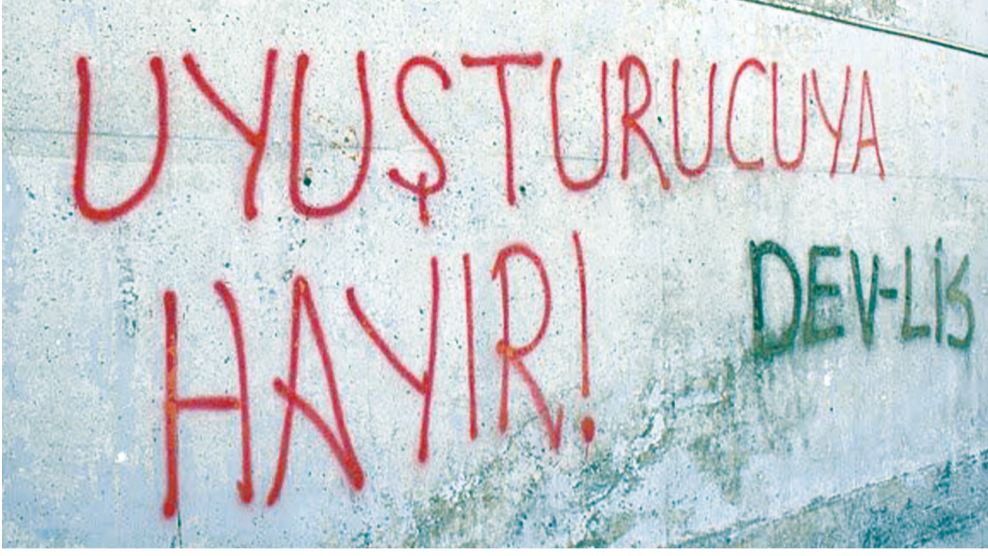 UYUŞTURUCUYA
HAYIR!
DEV-LİS